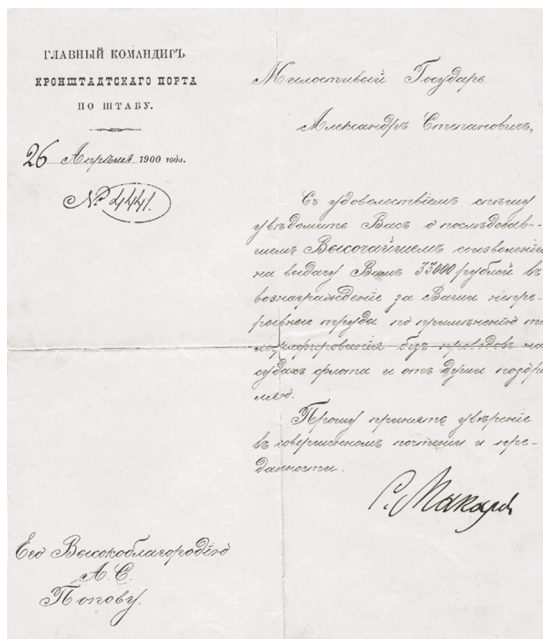 ГЛАВНЫЙ КОМАНДИРЪ
КРОНШТАДТСКАГО ПОРТА
ПО ШТАБУ.
26 Апрѣля 1900 года.
№ 4441.
Милостивый Государь
Александръ Степановичъ,
Съ удовольствіемъ спѣшу
увѣдомить Васъ о послѣдовав-
шемъ Высочайшемъ соизволеніи
на выдачу Вамъ 33000 рублей въ
вознагражденіе за Ваши непре-
рывные труды по примѣненію те
леграфированія безъ проводовъ на
судахъ флота и отъ души поздра
вляю.
Прошу принять увѣреніе
въ совершенномъ почтеніи и пре-
данности.
С. Макаровъ
Его Высокоблагородію
А. С.
Попову.